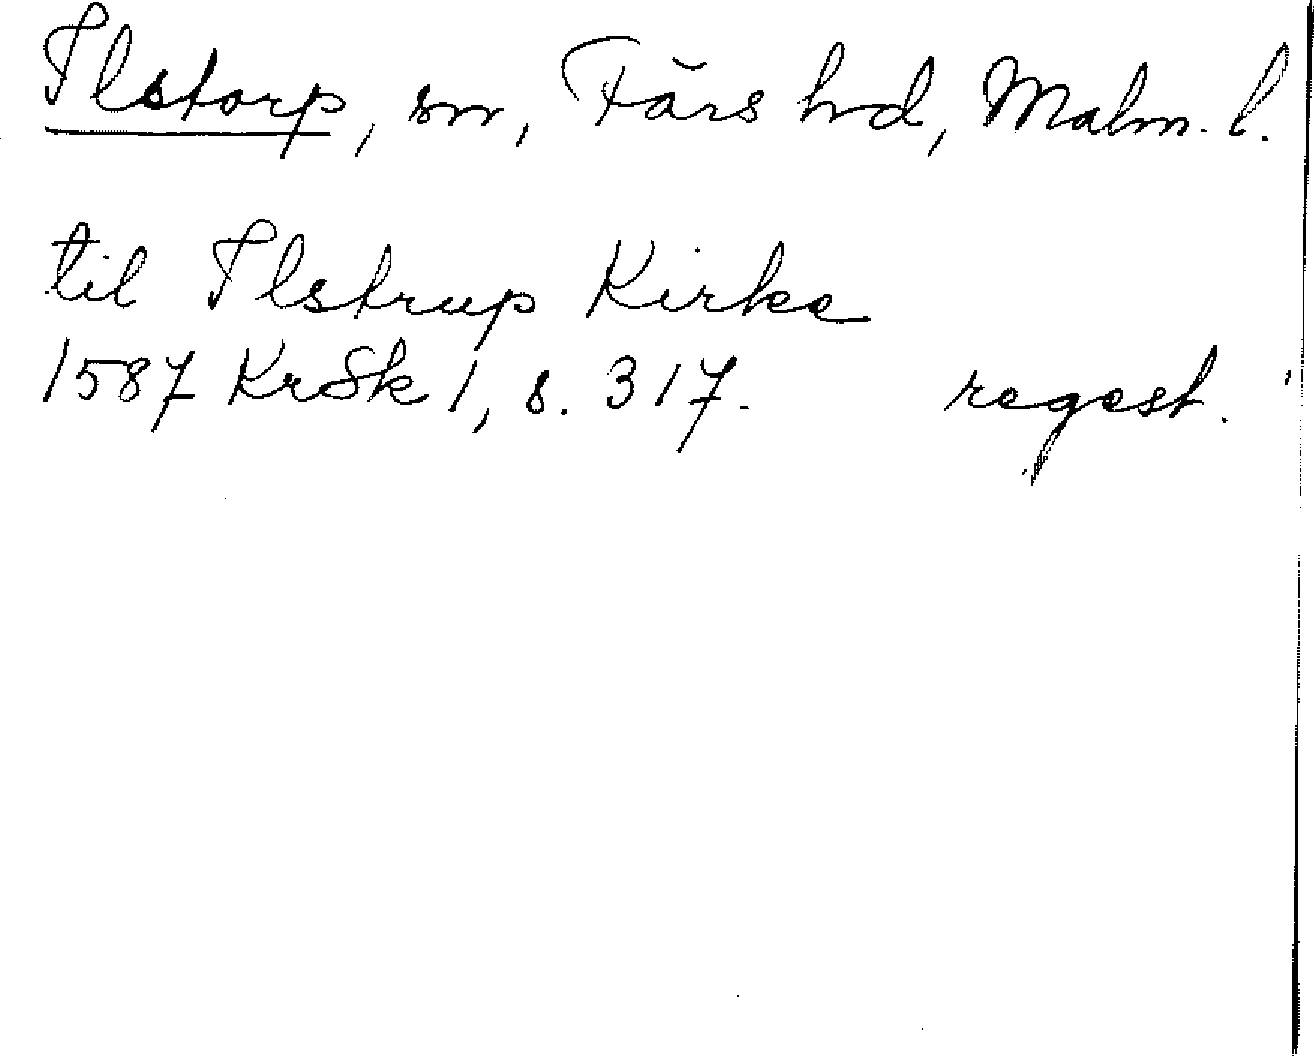 Ilstorp, sn, Färs hd, Malm. l.
til Ilstrup Kirke
1587 KrSk 1, s. 317. regest.